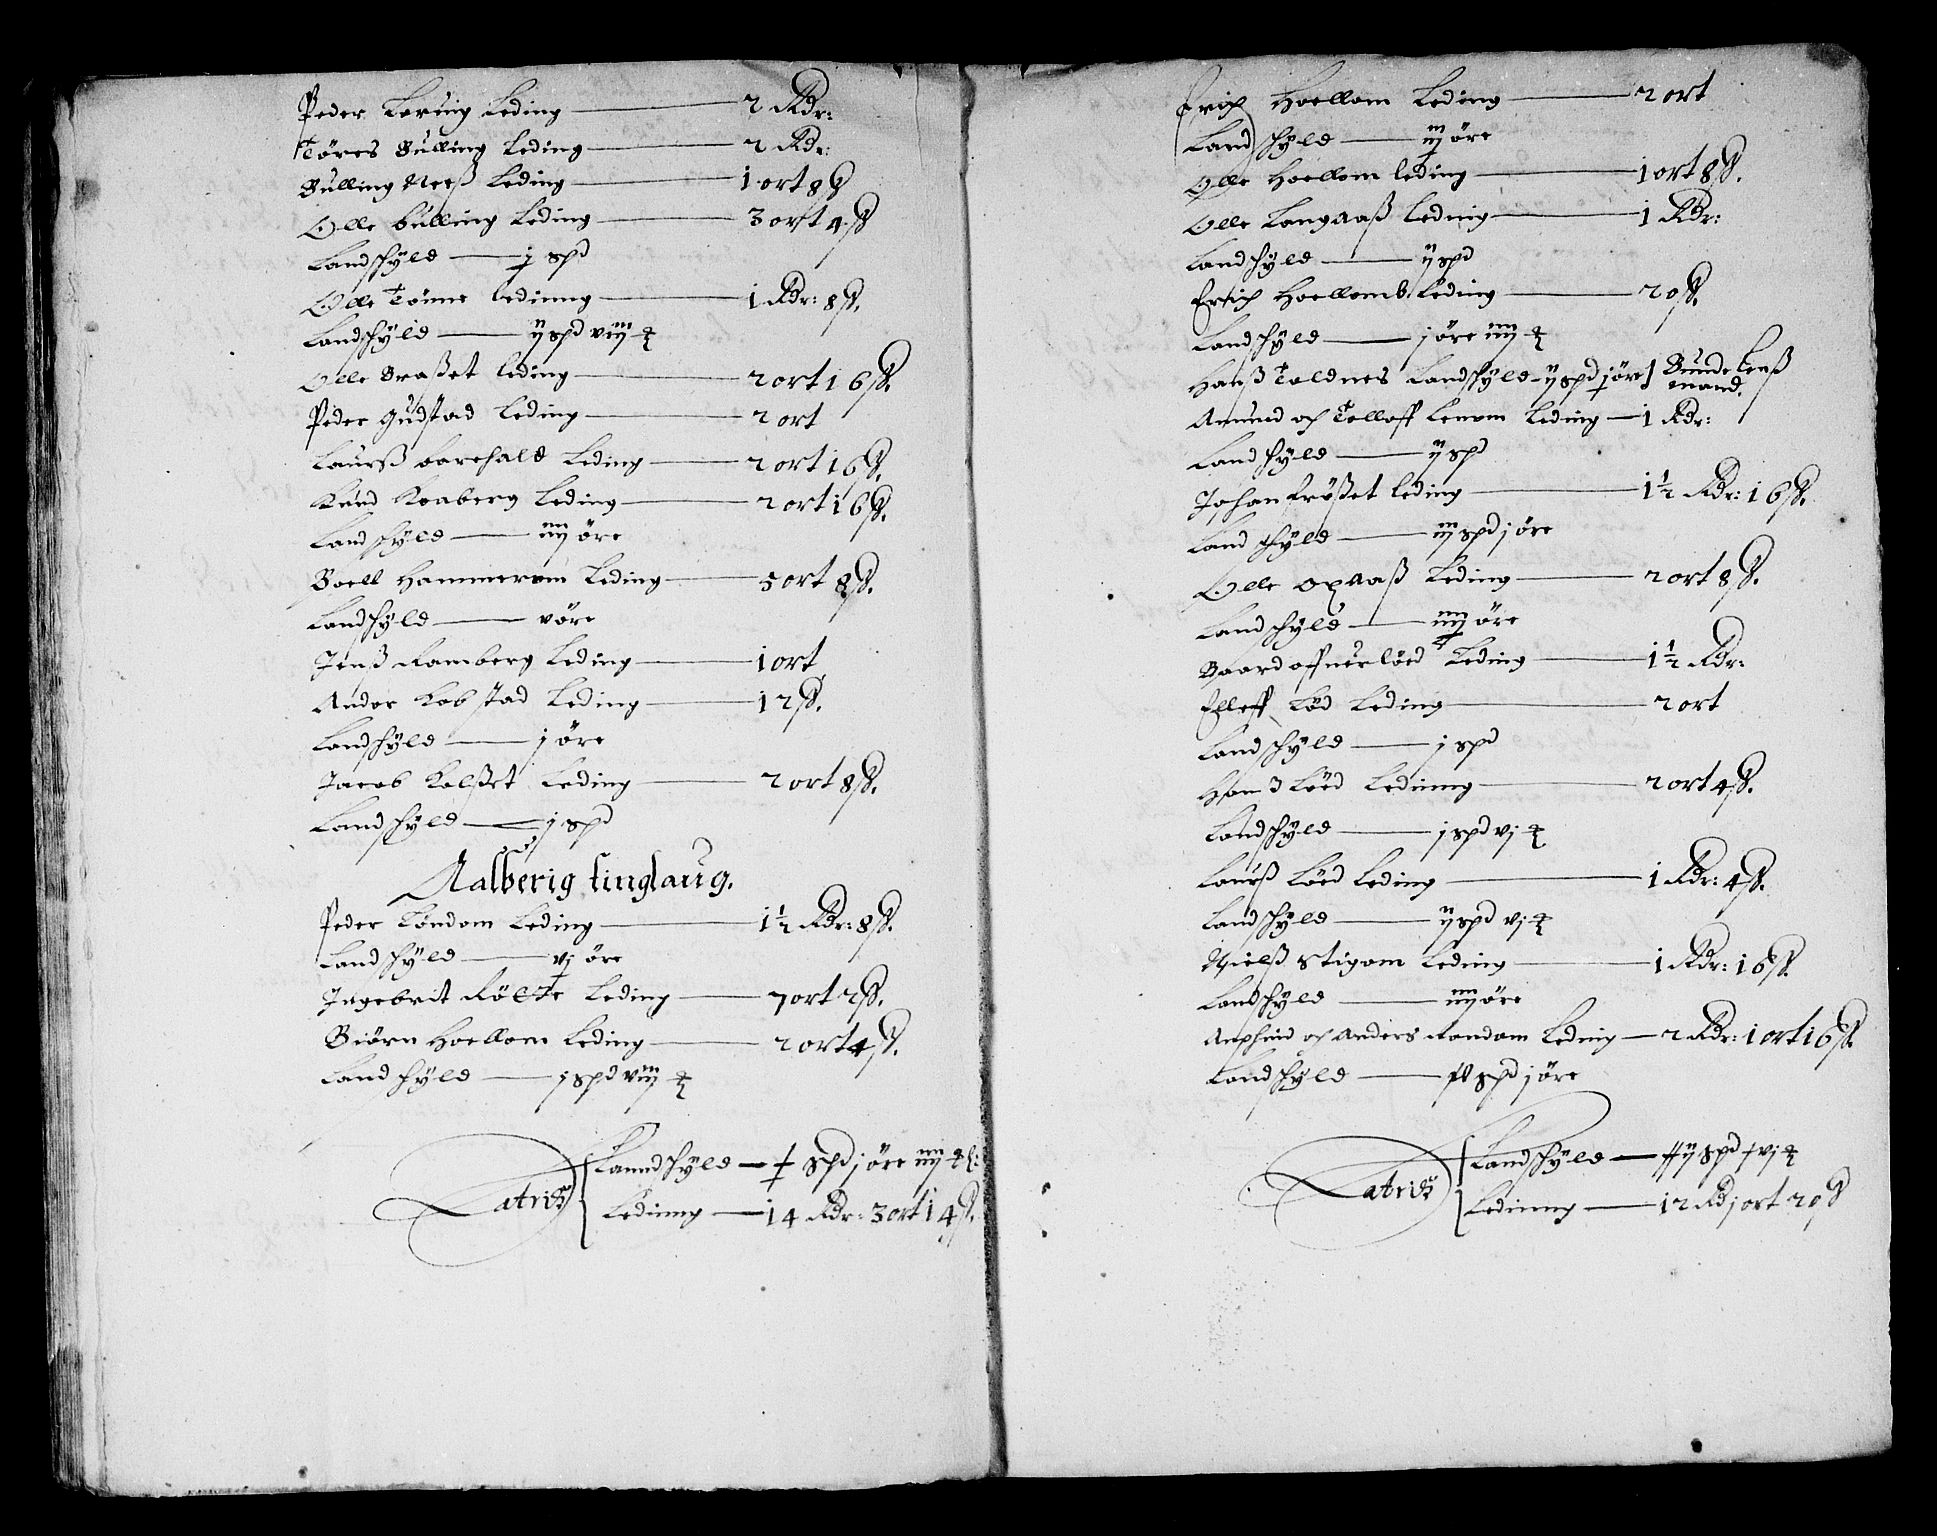 Peder Leruig Leding — 2 Rdr:
Töres Bulling Leding — 2 Rdr:
Bulling Neeß Leding — 1 ort 8 ß
Olle bulling Leding — 3 ort 4 ß
Landschyld — j spd
Olle Tönne ledinng — 1 Rdr: 8 ß.
Landschyld — ij spd viij
Olle Braßet leding — 2 ort 16 ß.
Peder Gudstad Leding — 2 ort
Laurß aarehald Leding — 2 ort 16 ß.
Knud Koaberg Leding — 2 ort 16 ß.
Landschyld — iiij öre
Boell Hammerom Leding — 5 ort 8 ß.
Landschyld — v öre
Jenß Ramberg Leding — 1 ort
Andor Kobstad Leding — 12 ß.
Landschyld — j öre
Jacob Kolßet Leding — 2 ort 8 ß.
Landschyld — j spd
Aalberig tinglaug.
Peder Töndom Leding — 1½ Rdr: 8 ß.
Landschyld — vj öre
Ingebrit Röette Leding — 7 ort 2 ß.
Biörn Hoellom Leding — 2 ort 4 ß.
Landschyld — j spd viij
Lateris
Lanndschyld — spd j öre iiij
Ledinng — 14 Rdr: 3 ort 14 ß.
Erich Hoellom Leding — 2 ort
Landschyld — iij öre
Olle Hoellom leding — 1 ort 8 ß.
Olle Langaaß leding — 1 Rdr:
Landschyld — ij spd
Erich Hoellomb Leding — 20 ß.
Landschyld — j öre iiij
Hanß Toldnes Landschyld — ij spd j öre Bunde Lenß mand.
Amund och Tolloff Lenom Leding — 1 Rdr:
Landschyld — ij spd
Johan fröset leding — 1½ Rdr: 16 ß.
Landschyld — iij spd j öre
Olle oxaaß Leding — 2 ort 8 ß.
Landschyld — iiij öre
Baard offuer löed Leding — 1½ Rdr:
Elleff Löd Leding — 2 ort
Landschyld — j spd
Hanß Löed Ledinng — 2 ort 4 ß.
Landschyld — j spd vj
Laurß Löed Leding — 1 Rdr: 4 ß.
Landschyld — ij spd vj
Nielß Stigom Leding — 1 Rdr: 16 ß.
Landschyld — iiij öre
Amphind och Anders Rondom Leding — 2 Rdr: 1 ort 16 ß.
Landschyld — spd j öre
Lateris
Landschyld — spd vj
Ledinng — 12 Rd j ort 20 ß